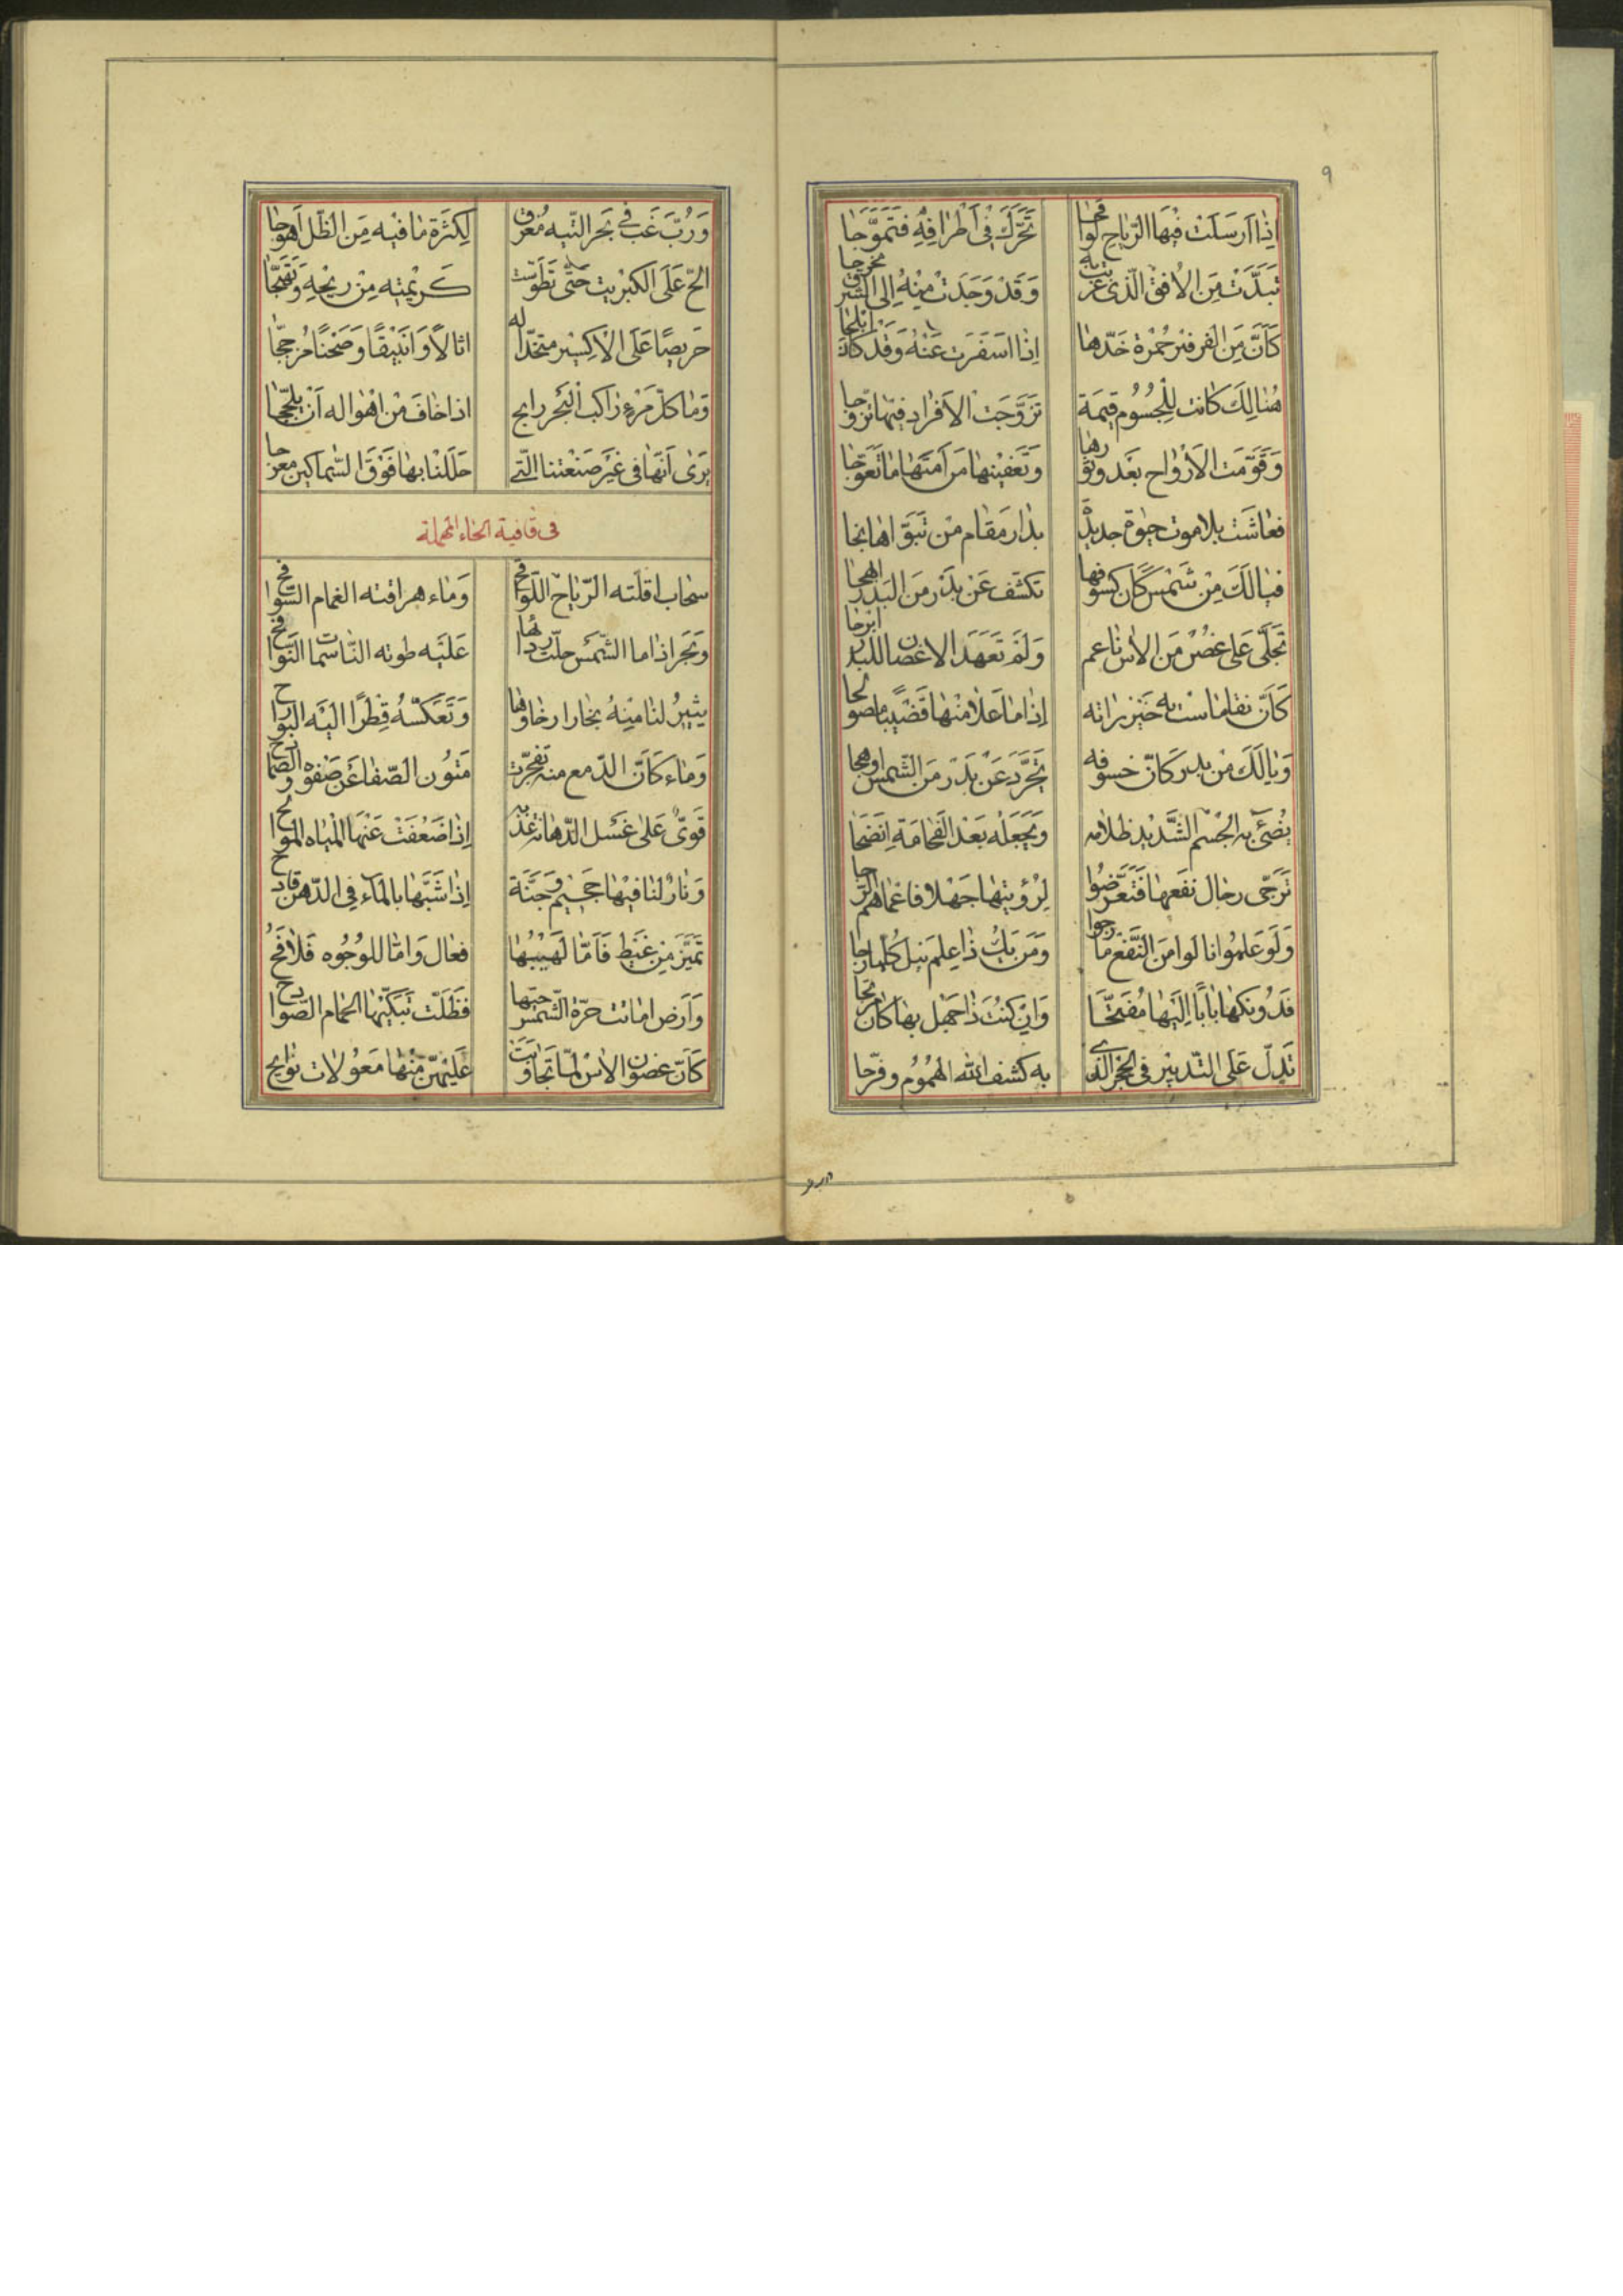 ٩
اِذا اَرسَلَتْ فيْهَا الرّياحِ لَوافحا تَحَرَّكَ فِى اَطْرافِهِ فَتَمَوَّجَا
تَبَدَّتْ مِنَ الاُفقِ الّذى غربَت به وَقَدْ وَجَدَتْ مِنْهُ اِلى الشرق مخرجا
كَاَنَّ مِنَ الفرفير حُمْرة خَدّها اِذا اسفَرَت عَنْهُ وَقَدْ كانَ ابلجا
هُنالِكَ كانت لِلْجُسُومِ قيمَة تزَوَّجَت الاَفراد فيها تزوّجا
وَقَوّمَت الاَرْواح بعْد
فعاشَت بلا موت حيٰوة جديدة بدار مَقام مَنْ تَبَوّاها نجا
فيا لَكَ مِنْ شَمْس كَاَن كسوفها تكشّف عَنْ بدْر مِنَ البَدر ابهجا
تجَلَّى عَلى غصُن مِن الاٰس ناعم وَلَمْ تعَهَد الاغصان للبدر ابرجا
كَاَنّ نقا ماست به خيزرانه اِذا ما عَلا مِنْها قَضيبًا
وَيا لَكَ مِن بدر كَانّ خسوفه تجَرَّد عَنْ بَدْر مِنَ الشّمس اوهجا
يُضئُ به الجْسْم الشَّديد ظلامه وَيَجْعَلُه بَعْد الفَحامَة
تَرَجّى رجال نفعها فَتَعَرّضُوا لِرُؤيتها جَهْلا
وَلَوْ عَلمُوا نالوا مِنَ النّفعِ ما رجوا وَمَن يَكُ ذا عِلم ينل كُلما رجا
فَدُونكها بابًا اِلَيْها مُفَتّحًا وَاِن كُنتَ ذا جَهْل بها كان
تَدلّ عَلى التّدبير فى الحجر الذى به كشف الله الهمُوم وفرّجا
وَرُبّ غَب فى بَحر التيه مُغرق لِكثَرة ما فيه مِن الظّل اَهوجا
الحّ عَلَى الكبْريت حَتّى تَطَوّست كَريْمته مِنْ ريْحِهِ وَتَفَجّا
حَريصًا عَلَى الاَكِسيْر متخذًا له اثالاً وَانبيْقًا وَصَحْنًا مُزججًّا
وَما كلّ مَرْءٍ راكب البَحر رابح اذا خافَ مِن اهْواله اَنْ يلجّجا
يَرَى اَنّها فى غيْر صَنْعتنا الّتى حَلَلنا بها فَوْقَ السّماكين معرجا
فى قافية الحاء المهملة
سَحاب اقلّته الرّياح اللّواقح وَماء هراقته الغمام السّوافح
وَبَحر اذا ما الشّمْس حلّت عَلَيْه طوته
يثيْرُ لنا مِنهُ بخارا رخاوها وَتَعكسُهُ قِطْرًا الَيْه البَوارح
وَماء كَاَنّ الدّمع منه تفجّرت مَتوُن الصّفا عَن صَفوه
قَوىٌّ عَلى غسْل الدّهانة اِذا ضَعُفَتْ عَنْهَا المْياه الموالح
وَنارٌ لَنا فيْها جَحيْم وَجَنَّة اِذا شَبَّها بالمآء فى الدّهن قادح
تَميَّزَ مِن غَيظ فَاَمّا لَهيْبُها فعال وَامّا للوُجُوه فَلافحُ
وَاَرض اماتت حَرّة الشّمس فظَلّت تُبَكّيْها الحمام الصّوادح
كَاَنّ غصون الاٰس لمّا تَجاوَبَت عَلَيْهنّ مِنْها مَعُولات نوايح